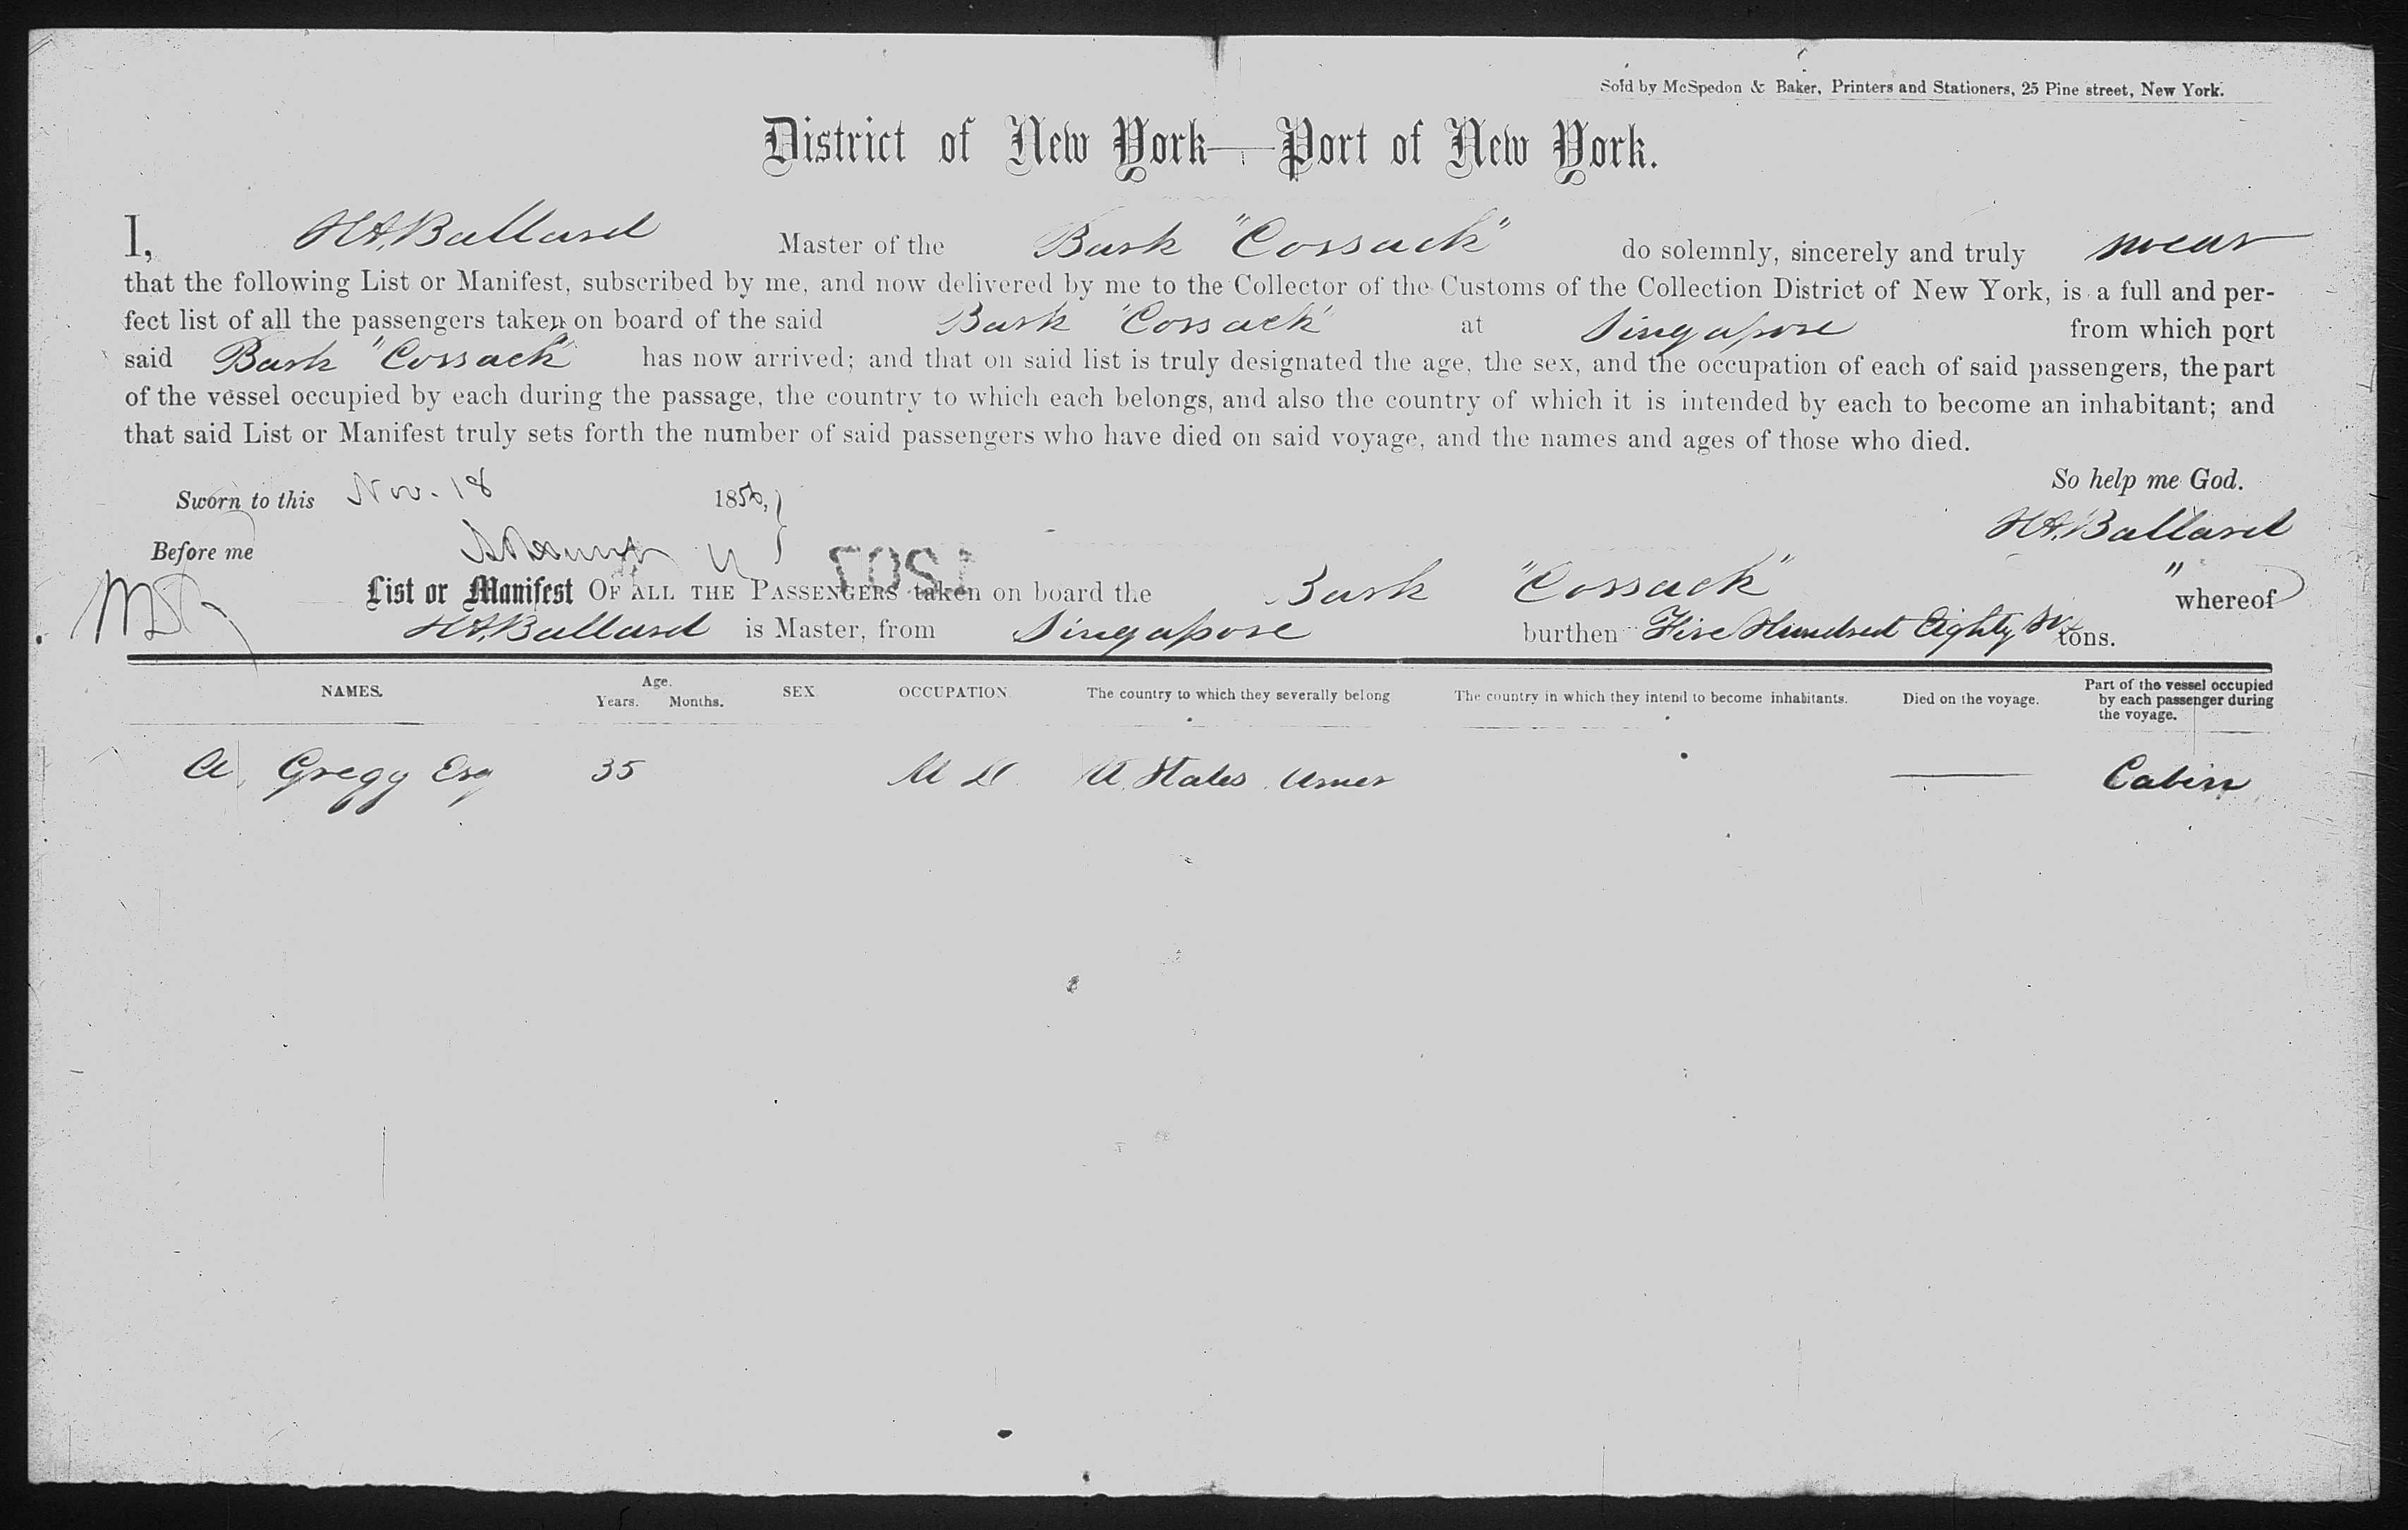 Sold by McSpedon & Baker, Printers and Stationers, 25 Pine street, New York.
District of New York—Port of New York.
I, H A. Ballard Master of the Bark "Cossack" do solemnly, sincerely and truly swear
that the following List or Manifest, subscribed by me, and now delivered by me to the Collector of the Customs of the Collection District of New York, is a full and per-
fect list of all the passengers taken on board of the said Bark "Cossack" at Singapore from which port
said Bark "Cossack" has now arrived; and that on said list is truly designated the age, the sex, and the occupation of each of said passengers, the part
of the vessel occupied by each during the passage, the country to which each belongs, and also the country of which it is intended by each to become an inhabitant; and
that said List or Manifest truly sets forth the number of said passengers who have died on said voyage, and the names and ages of those who died.
So help me God.
Sworn to this Nov. 18 1856,
H A. Ballard
Before me
List or Manifest OF ALL THE PASSENGERS taken on board the Bark "Cossack" " whereof
H A. Ballard is Master, from Singapore burthen Five Hundred Eighty Six tons.
NAMES. Age. Years. Months. SEX OCCUPATION. The country to which they severally belong The country in which they intend to become inhabitants. Died on the voyage. Part of the vessel occupied by each passenger during the voyage.
A. Gregg Esq 35 M D U. States Amer — Cabin